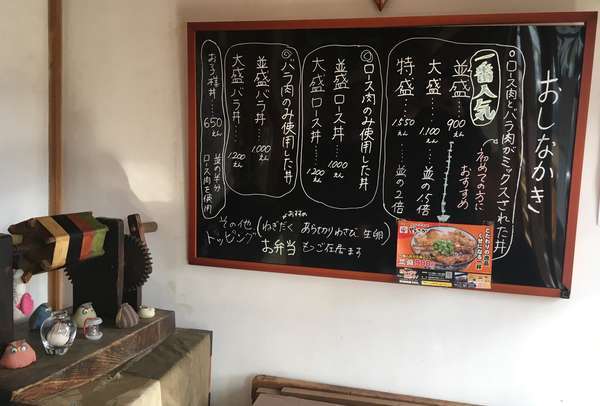 おしなかき
○ロース肉とバラ肉がミックスされた丼
一番人気
並盛……900えん
初めての方に
おすすめ
大盛……1,100えん…並の1.5倍
特盛……1550えん…並の2倍
◎ロース肉のみ使用した丼
並盛ロース丼……1000えん
大盛ロース丼……1200えん
◎バラ肉のみ使用した丼
並盛バラ丼……1000えん
大盛バラ丼……1200えん
お子様丼……650えん
並の半分
ロース肉を使用
その他
トッピング
おすすめ
(ねぎだく あらきりわさび 生卵
お弁当もご座居ます
こだわりの逸品
くせになる一丼